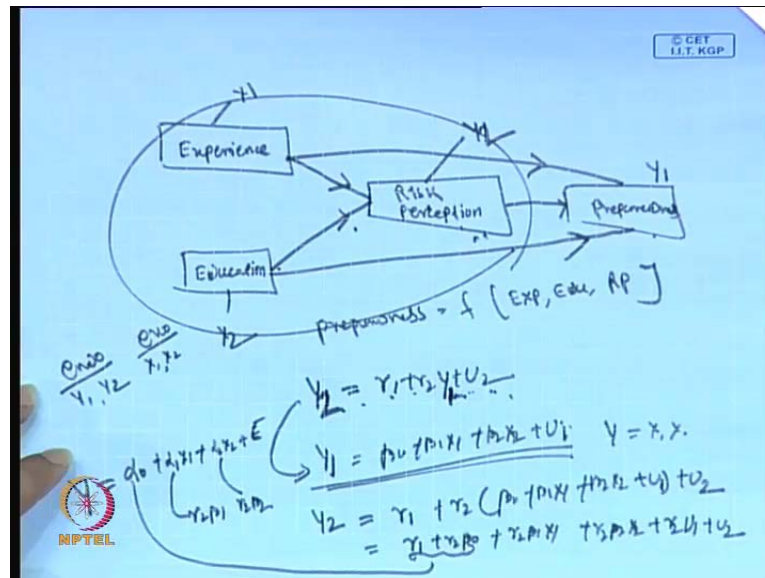 © CET
I.I.T. KGP
X1
Experience
Y1
Risk
Perception
Education
X2
preparedness = f [ Exp, Edu, RP ]
endo exo
Y1, Y2 X1, X2
Y2 = r1 + r2 Y1 + U2
Y1 = β0 + β1X1 + β2X2 + U1 Y = X, X.
= α0 + α1X1 + α2X2 + E
r2β1 r2β2
Y2 = r1 + r2 (β0 + β1X1 + β2X2 + U1) + U2
= r1 + r2β0 + r2β1X1 + r2β2X2 + r2U1 + U2
NPTEL